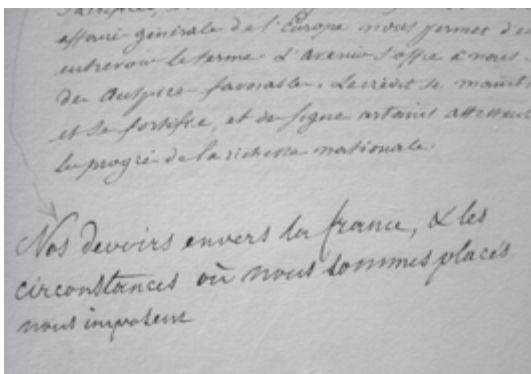 affaire générale de l'Europe nous permet d'en
entrevoir le terme. L'avenir s'offre à nous
de Auspice favorable. Le crédit se maint
et se fortifie, et de signe certains attesteur
le progré de la richesse nationale
Nos devoirs envers la france, & les
circonstances où nous sommes placés
nous imposent